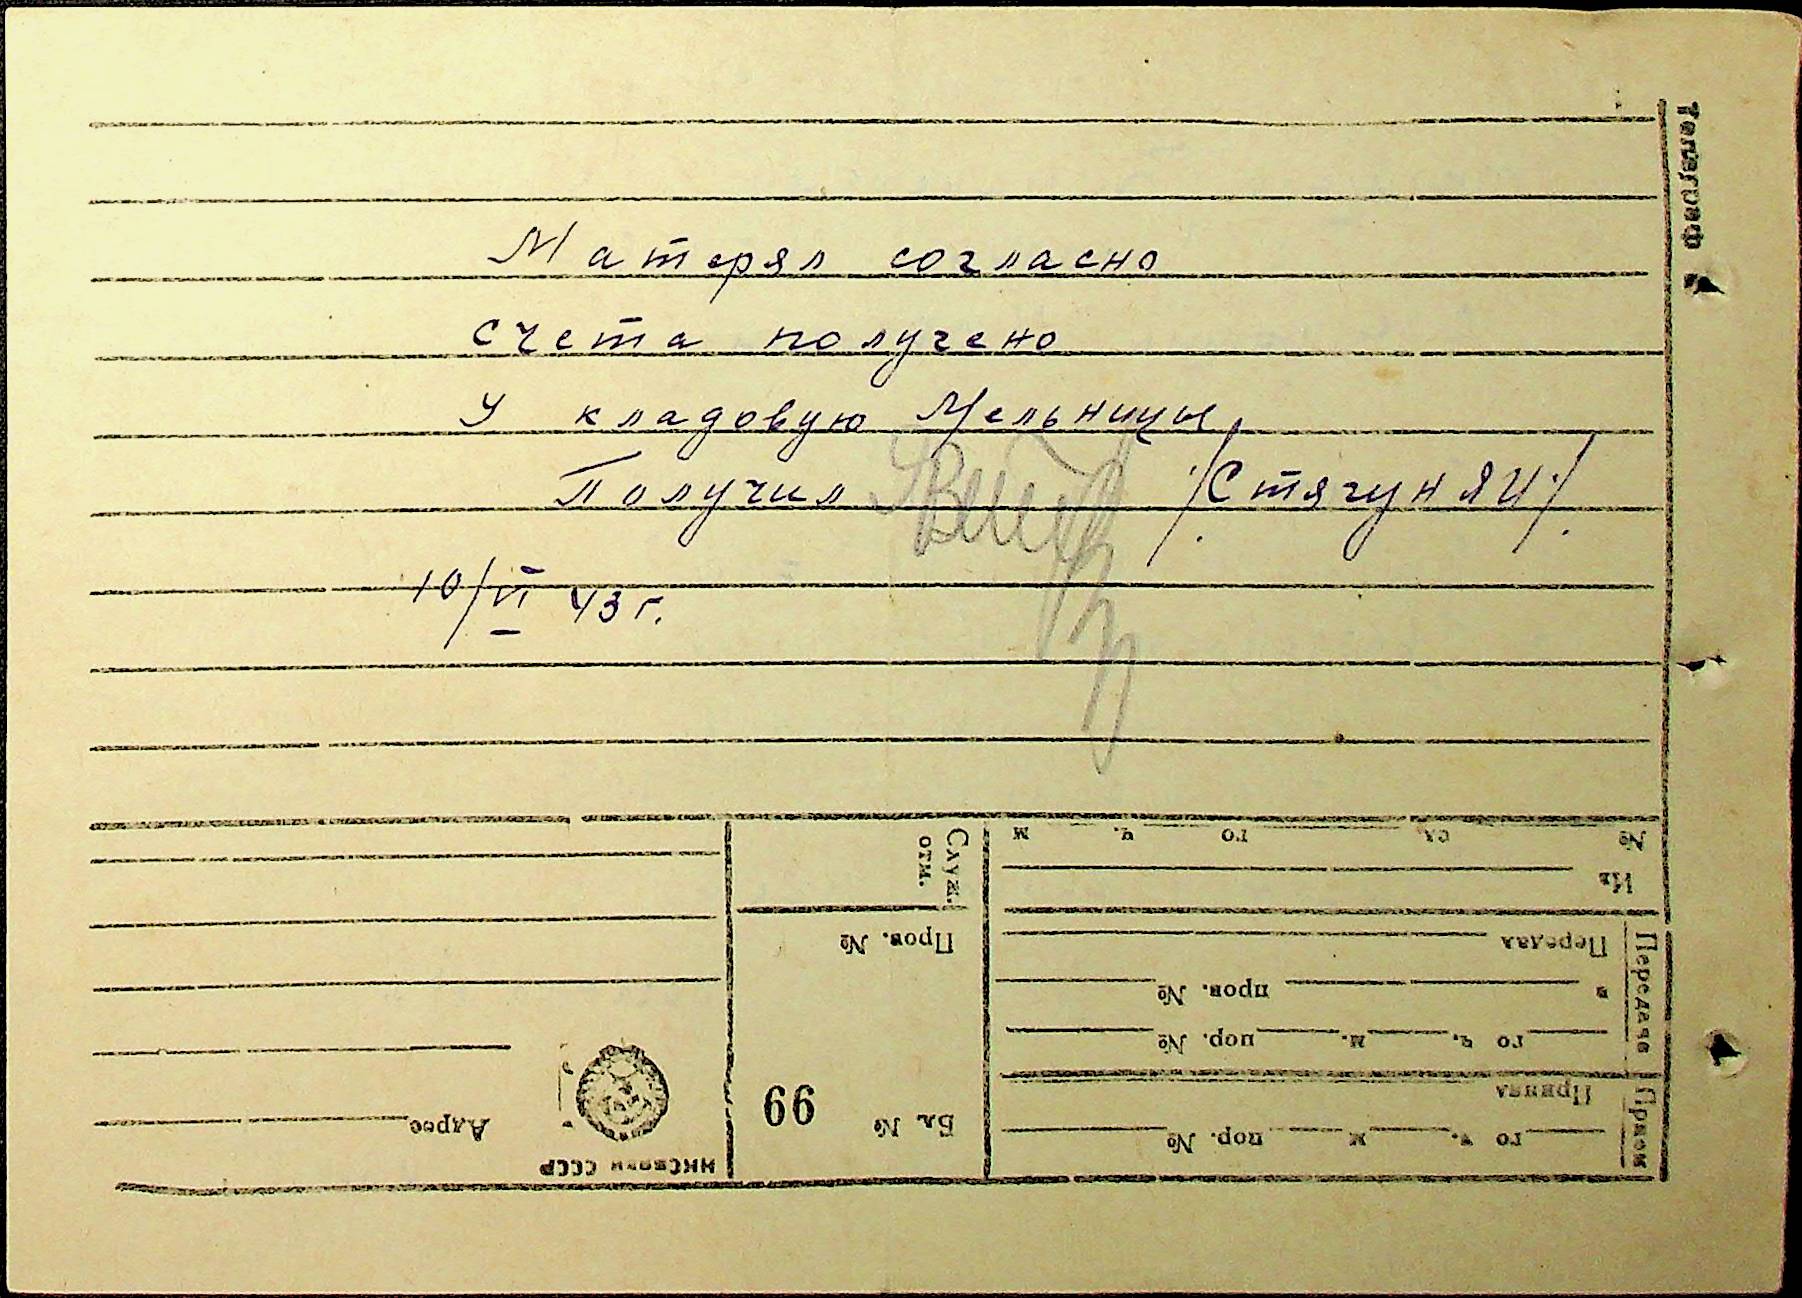 Телеграф
Матерял согласно
счета получено
У кладовую Мельницы
Получил /Стягун Я И/
10/VI 43 г.
№ сл. го ч. м
Из
Служ. отм.
Передача
Передал
в пров. №
го ч. м. пор. №
Пров. №
Прием
Принял
го ч. м пор. №
Бл. № 99
Адрес
НКСвязи СССР